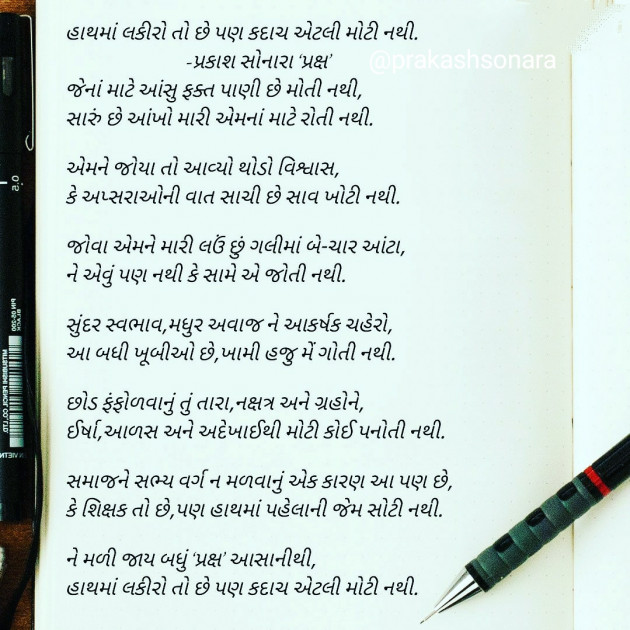 હાથમાં લકીરો તો છે પણ કદાચ એટલી મોટી નથી.
-પ્રકાશ સોનારા ‘પ્રક્ષ’
@prakashsonara
જેનાં માટે આંસુ ફક્ત પાણી છે મોતી નથી,
સારું છે આંખો મારી એમનાં માટે રોતી નથી.
એમને જોયા તો આવ્યો થોડો વિશ્વાસ,
કે અપ્સરાઓની વાત સાચી છે સાવ ખોટી નથી.
જોવા એમને મારી લઉં છું ગલીમાં બે-ચાર આંટા,
ને એવું પણ નથી કે સામે એ જોતી નથી.
સુંદર સ્વભાવ,મધુર અવાજ ને આકર્ષક ચહેરો,
આ બધી ખૂબીઓ છે,ખામી હજુ મેં ગોતી નથી.
છોડ ફંફોળવાનું તું તારા,નક્ષત્ર અને ગ્રહોને,
ઈર્ષા,આળસ અને અદેખાઈથી મોટી કોઈ પનોતી નથી.
સમાજને સભ્ય વર્ગ ન મળવાનું એક કારણ આ પણ છે,
કે શિક્ષક તો છે,પણ હાથમાં પહેલાની જેમ સોટી નથી.
ને મળી જાય બધું ‘પ્રક્ષ’ આસાનીથી,
હાથમાં લકીરો તો છે પણ કદાચ એટલી મોટી નથી.
0.5
BLACK